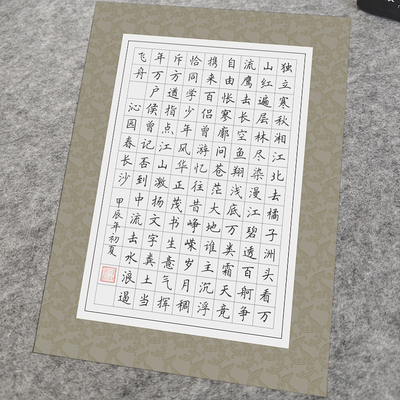 独立寒秋湘江北去橘子洲头看万
山红遍层林尽染漫江碧透百舸争
流鹰击长空鱼翔浅底万类霜天竞
自由怅寥廓问苍茫大地谁主沉浮
携来百侣曾游忆往昔峥嵘岁月稠
恰同学少年风华正茂书生意气挥
斥方遒指点江山激扬文字粪土当
年万户侯曾记否到中流击水浪遏
飞舟 沁园春长沙
甲辰年初夏